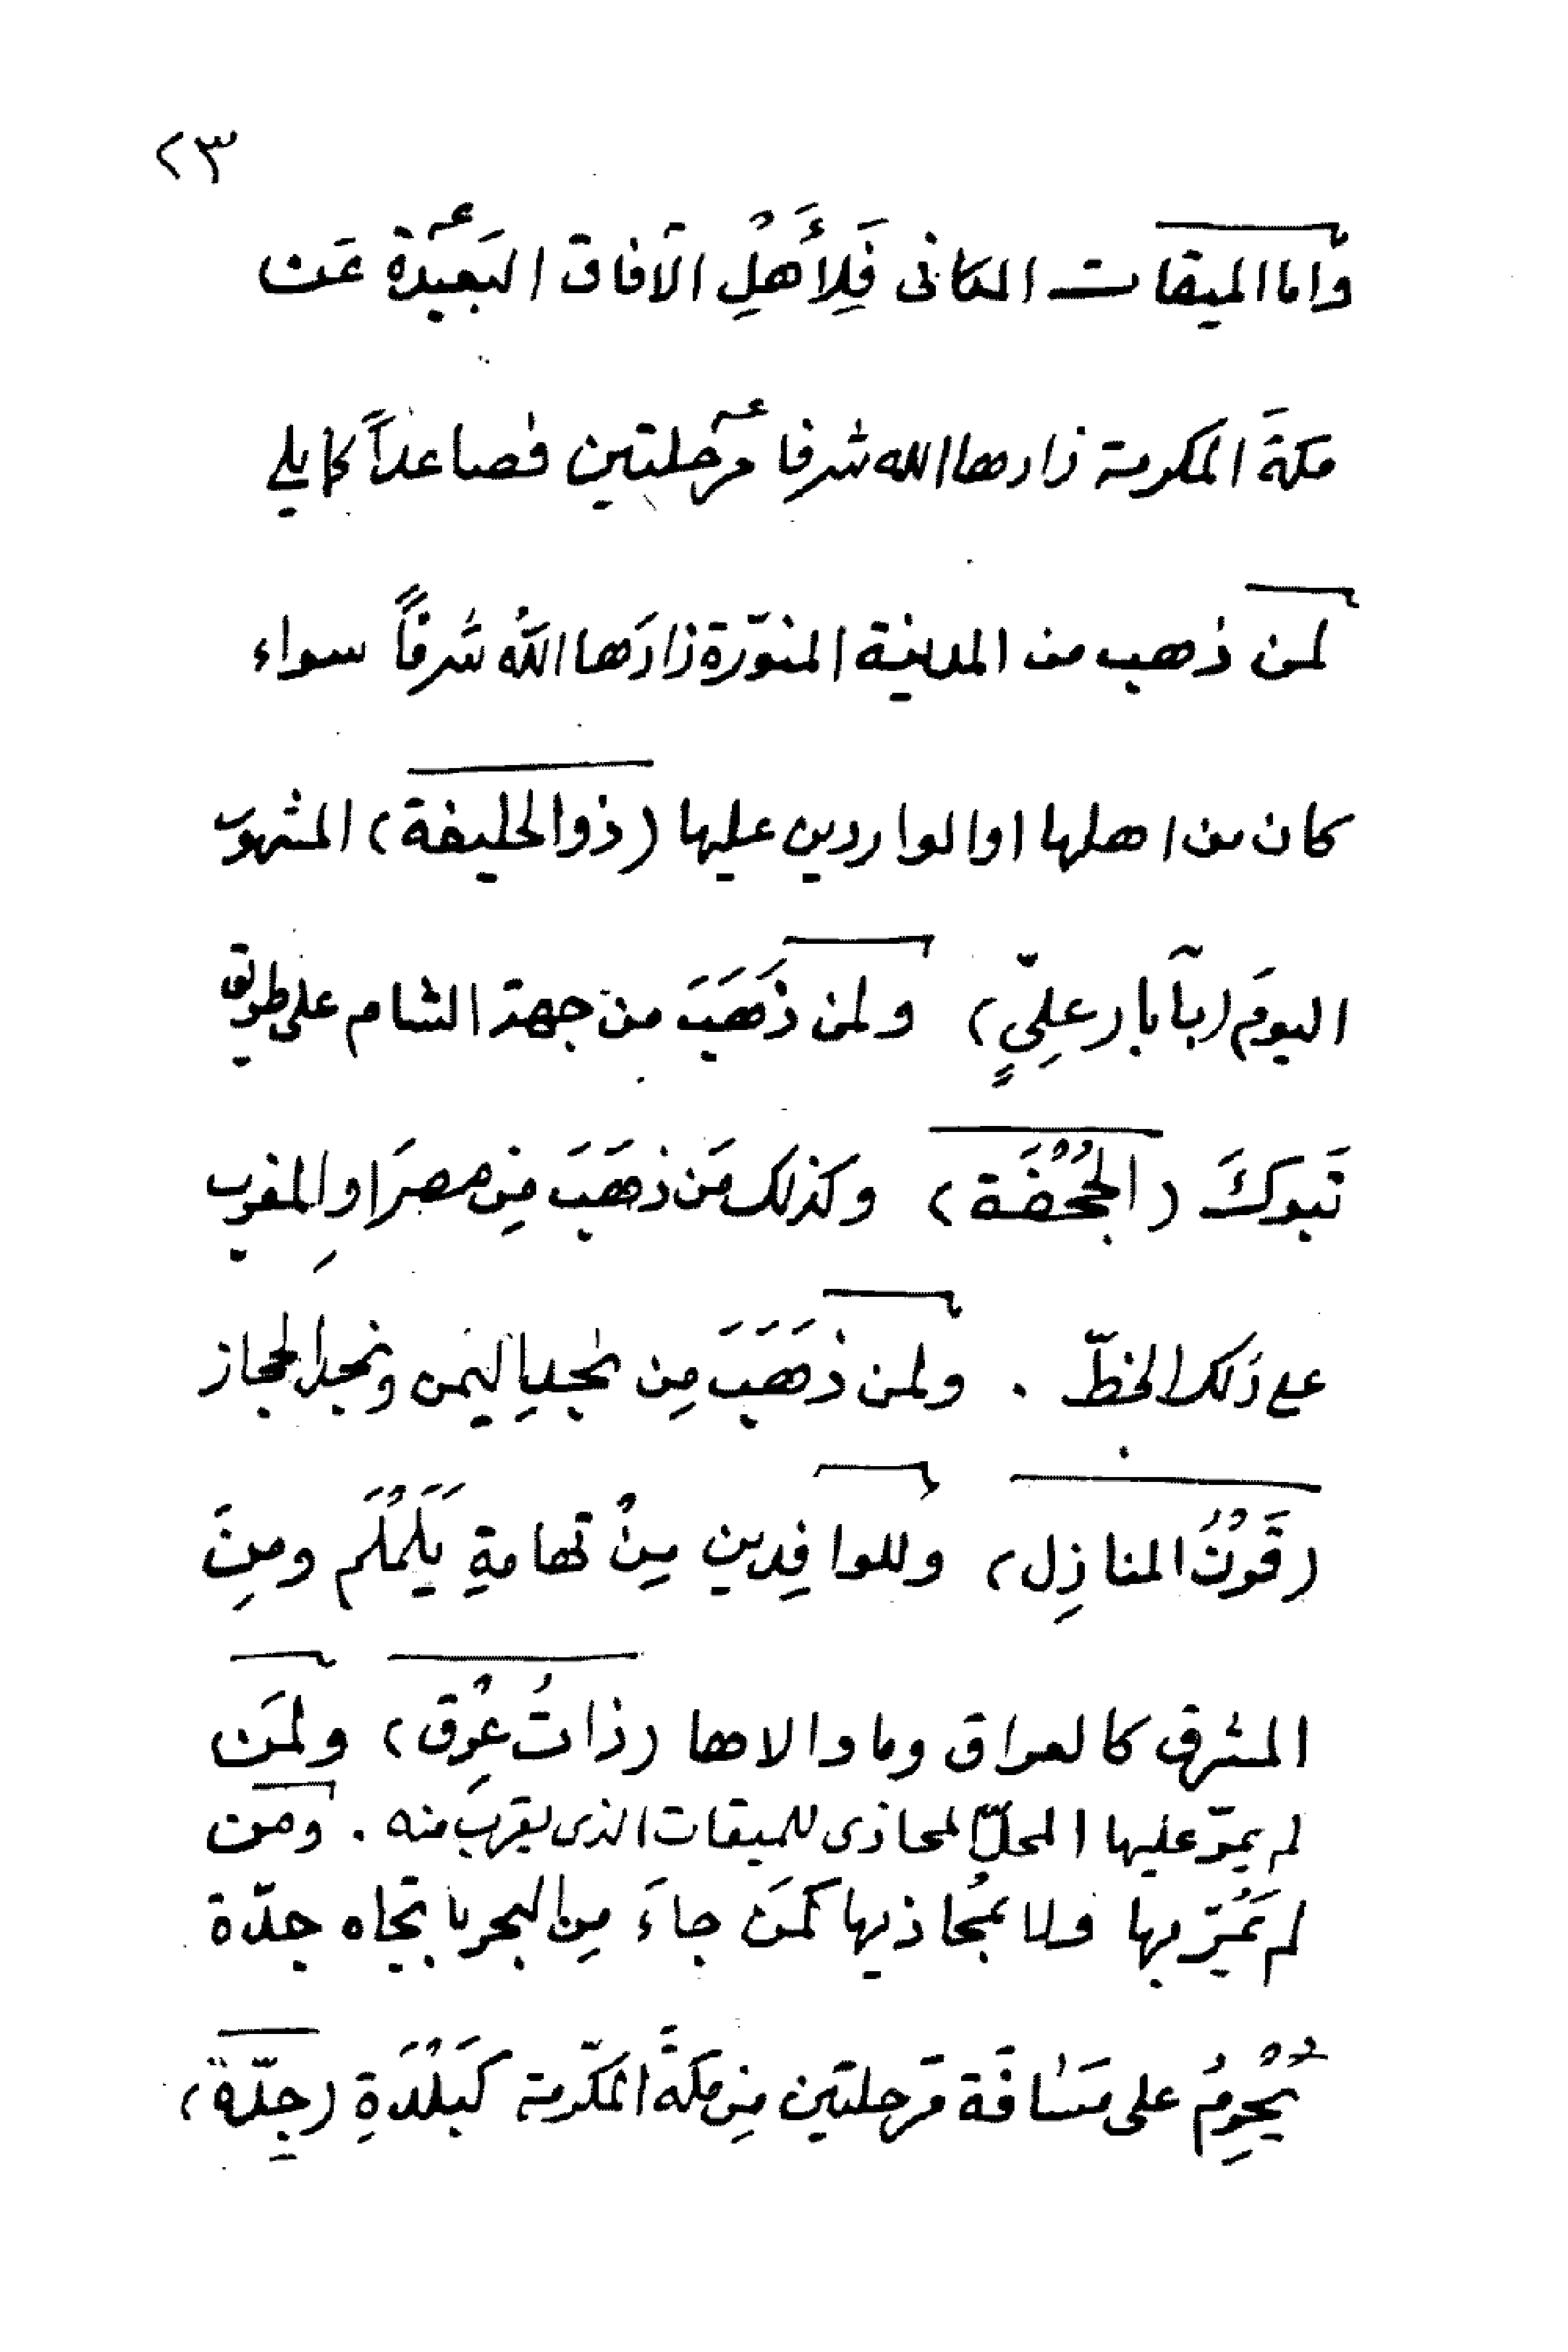 ٢٣
وأما الميقات المكانى فَلِأَهْلِ الآفاق البَعيدة عَن
مكةَ المكرمة زادها الله شرفا مَرحلتين فصاعداً كما يلي
لمن ذهب من المدينة المنوّرة زادَها اللهُ شَرفاً سواء
كان من اهلها او الواردين عليها (ذو الحليفة) المشهور
اليومَ (بآبار عليٍّ) ولمن ذَهَبَ من جهة الشام على طريق
تَبوكَ (الجُحْفَة) وكذلك مَن ذهَبَ مِن مصرَ او المغرب
على ذلك الخطّ . ولمن ذَهَبَ مِن نجدِ اليمن ونجد الحجاز
(قَرْنُ المنازِل) وللوافِدين مِنْ تهامةِ يَلَمْلَم ومِنَ
المشرق كالعراق وما والاها (ذاتُ عِرْق) ولمَن
لم يمرّ عليها المحلّ المحاذى للميقات الذى يقرب منه . ومن
لم يَمُرّ بها ولا بمُحاذيها كمَن جاءَ مِن البحر باتجاه جدّة
يُحْرِمُ على مَسافَة مَرحلتين مِن مكةَ المكرّمة كَبَلْدَةِ (جِدّة)